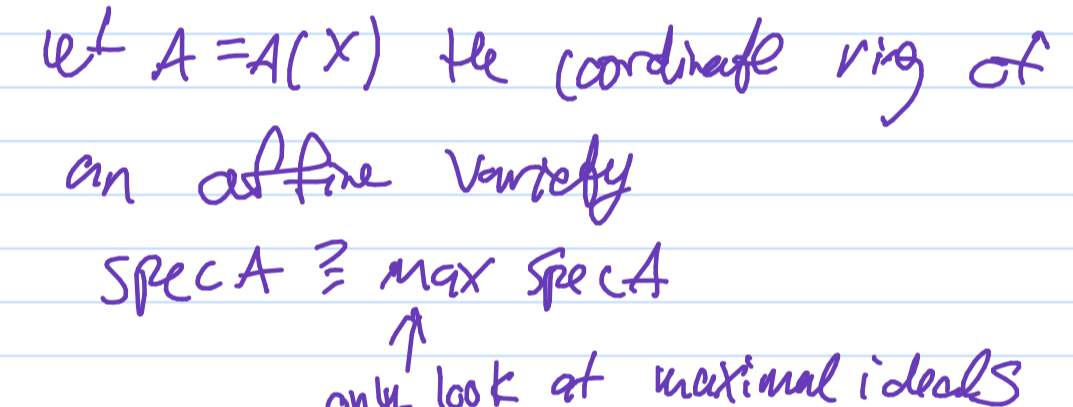 let A = A(X) the coordinate ring of
an affine variety
Spec A ⊇ max Spec A
↑
only look at maximal ideals